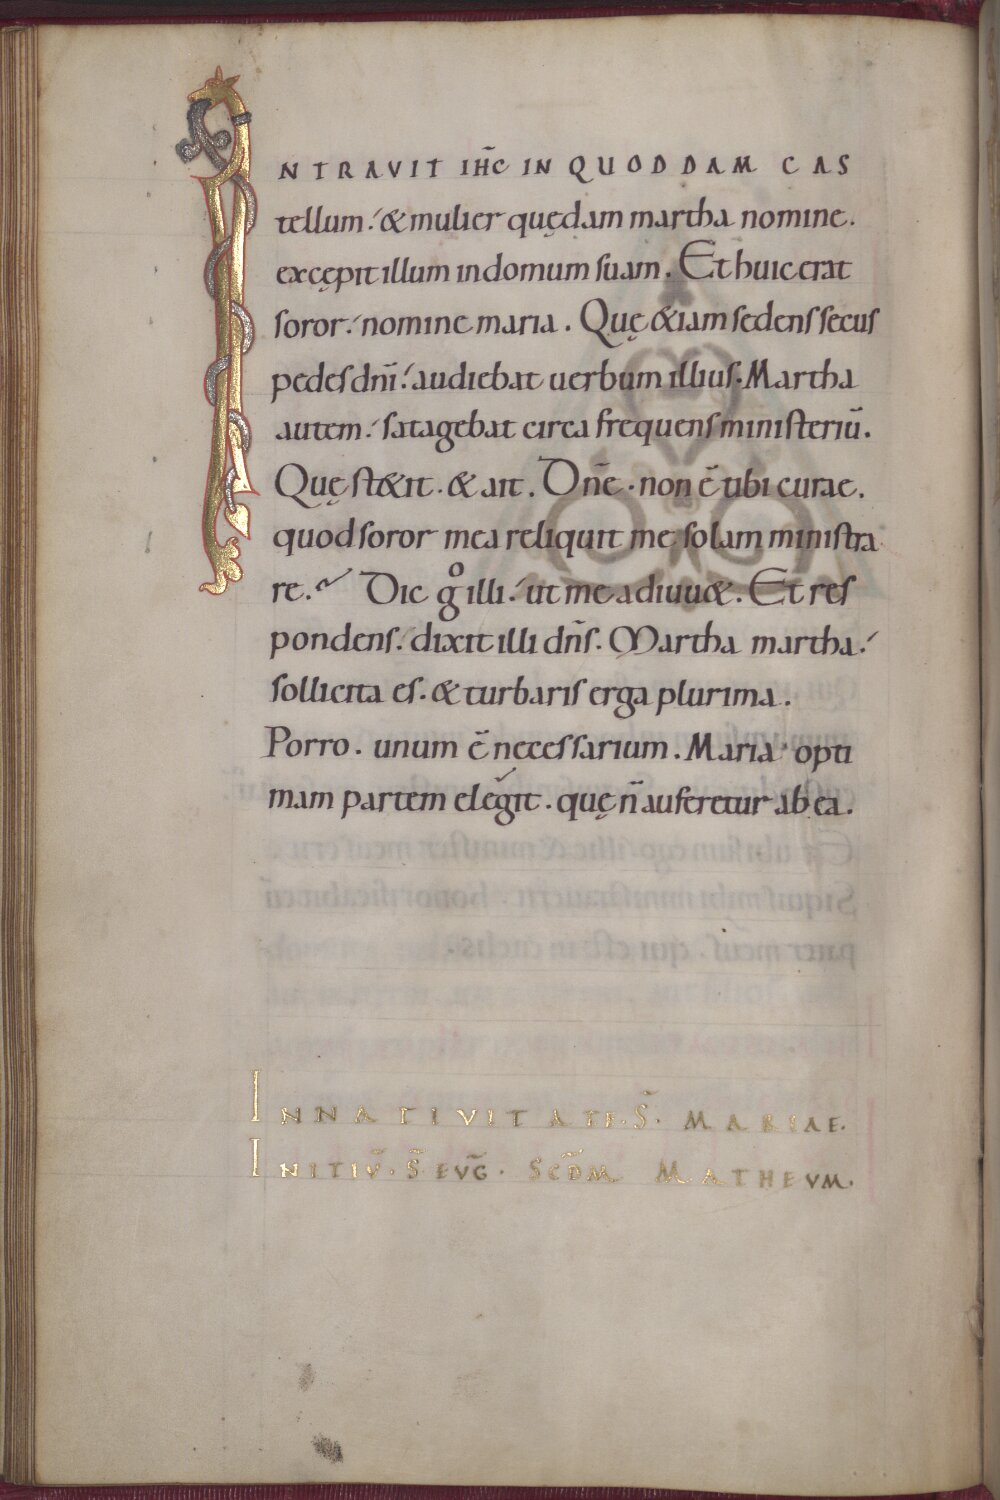 INTRAVIT IHC̄ IN QUODDAM CAS
tellum. & mulier quędam martha nomine.
excępit illum in domum suam. Et huic erat
soror. nomine maria. Quę &iam sedens secus
pedes dn̄i. audiebat uerbum illius. Martha
autem. satagebat circa frequens ministeriū.
Quę st&it. & ait. Dn̄e. non ē tibi curae.
quod soror mea reliquit me solam ministra
re. Dic gͦ illi. ut me adiuu&. Et res
pondens. dixit illi dn̄s. Martha martha.
sollicita es. & turbaris erga plurima.
Porro. unum ē necessarium. Maria opti
mam partem elegit. quę n̄ auferetur ab ea.
IN NATIVITATE. S̄. MARIAE.
INITIŪ. S̄. EVḠ. SCD̄M MATHEVM.